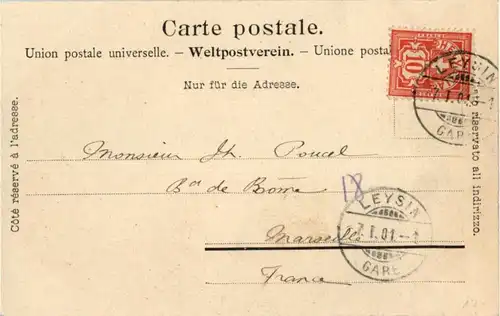 Carte postale.
Union postale universelle. — Weltpostverein. — Unione postal
Nur für die Adresse.
Côté réservé à l'adresse.
ato riservato all indirizzo.
HE
10
LEYSIN
7.I.01.-1
GARE
Monsieur Th. Poucel
Bd de Rome
18
LEYSIN
7.I.01.-1
GARE
Marseille
France